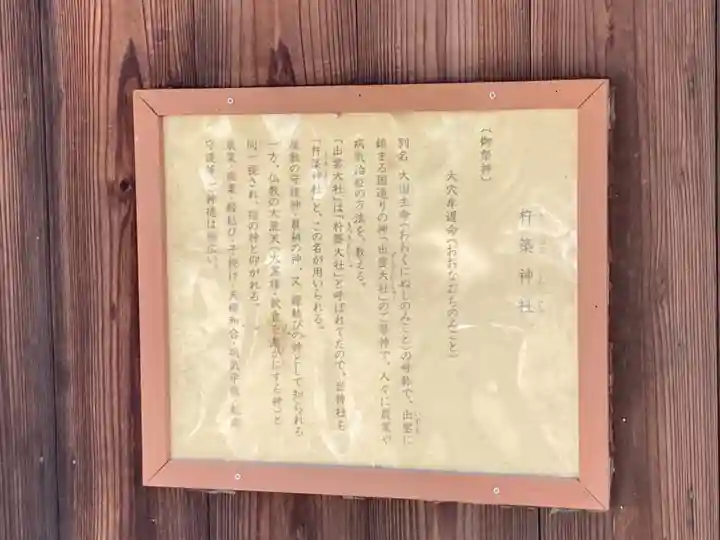 杵築神社
〔御祭神〕
大穴牟遅命(おおなむちのみこと)
別名 大国主命(おおくにぬしのみこと)の呼称で、出雲に
鎮まる国造りの神「出雲大社」のご祭神で、人々に農業や
病気治療の方法を、教える。
「出雲大社」は「杵築大社」と呼ばれてたので、当神社も
「杵築神社」と、この名が用いられる。
の守護神・の神、又・縁結びの神として知られる
一方、仏教の大黒天(大黒様・飲食を豊かにする神)と
同一視され、福の神と仰がれる。
農業・商業・縁結び・子授け・夫婦和合・病気平癒・
守護等、ご神徳は幅広い。